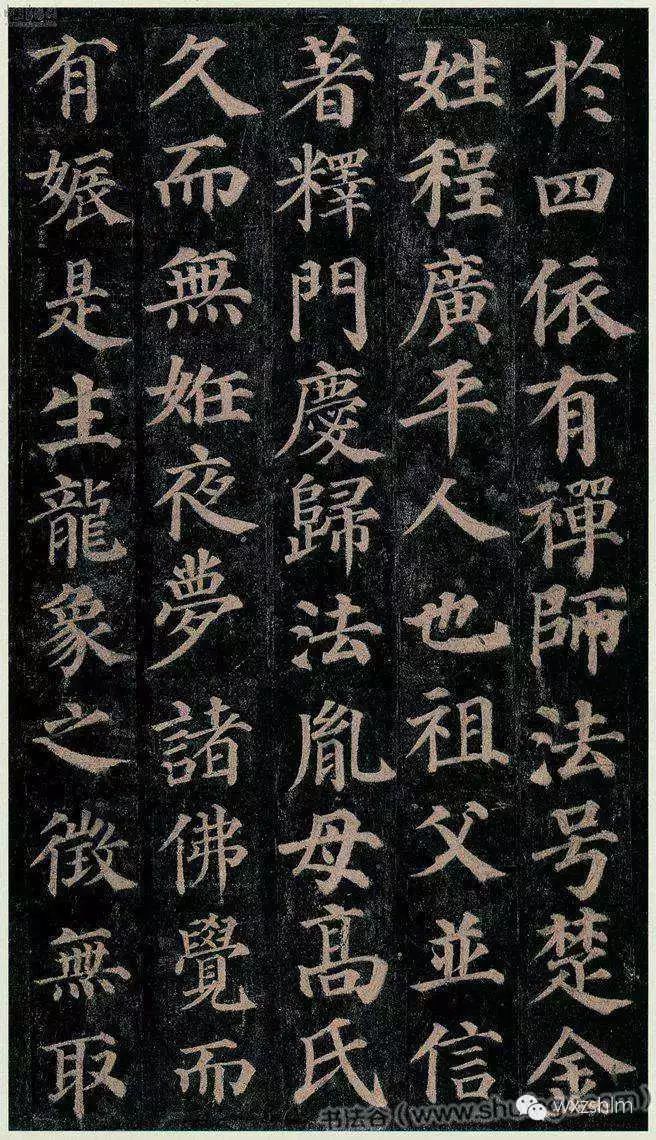 於四依有禪師法号楚金
姓程廣平人也祖父並信
著釋門慶歸法胤母髙氏
久而無姙夜夢諸佛覺而
有娠是生龍象之徵無取
书法谷(www.shu
wxzshlm